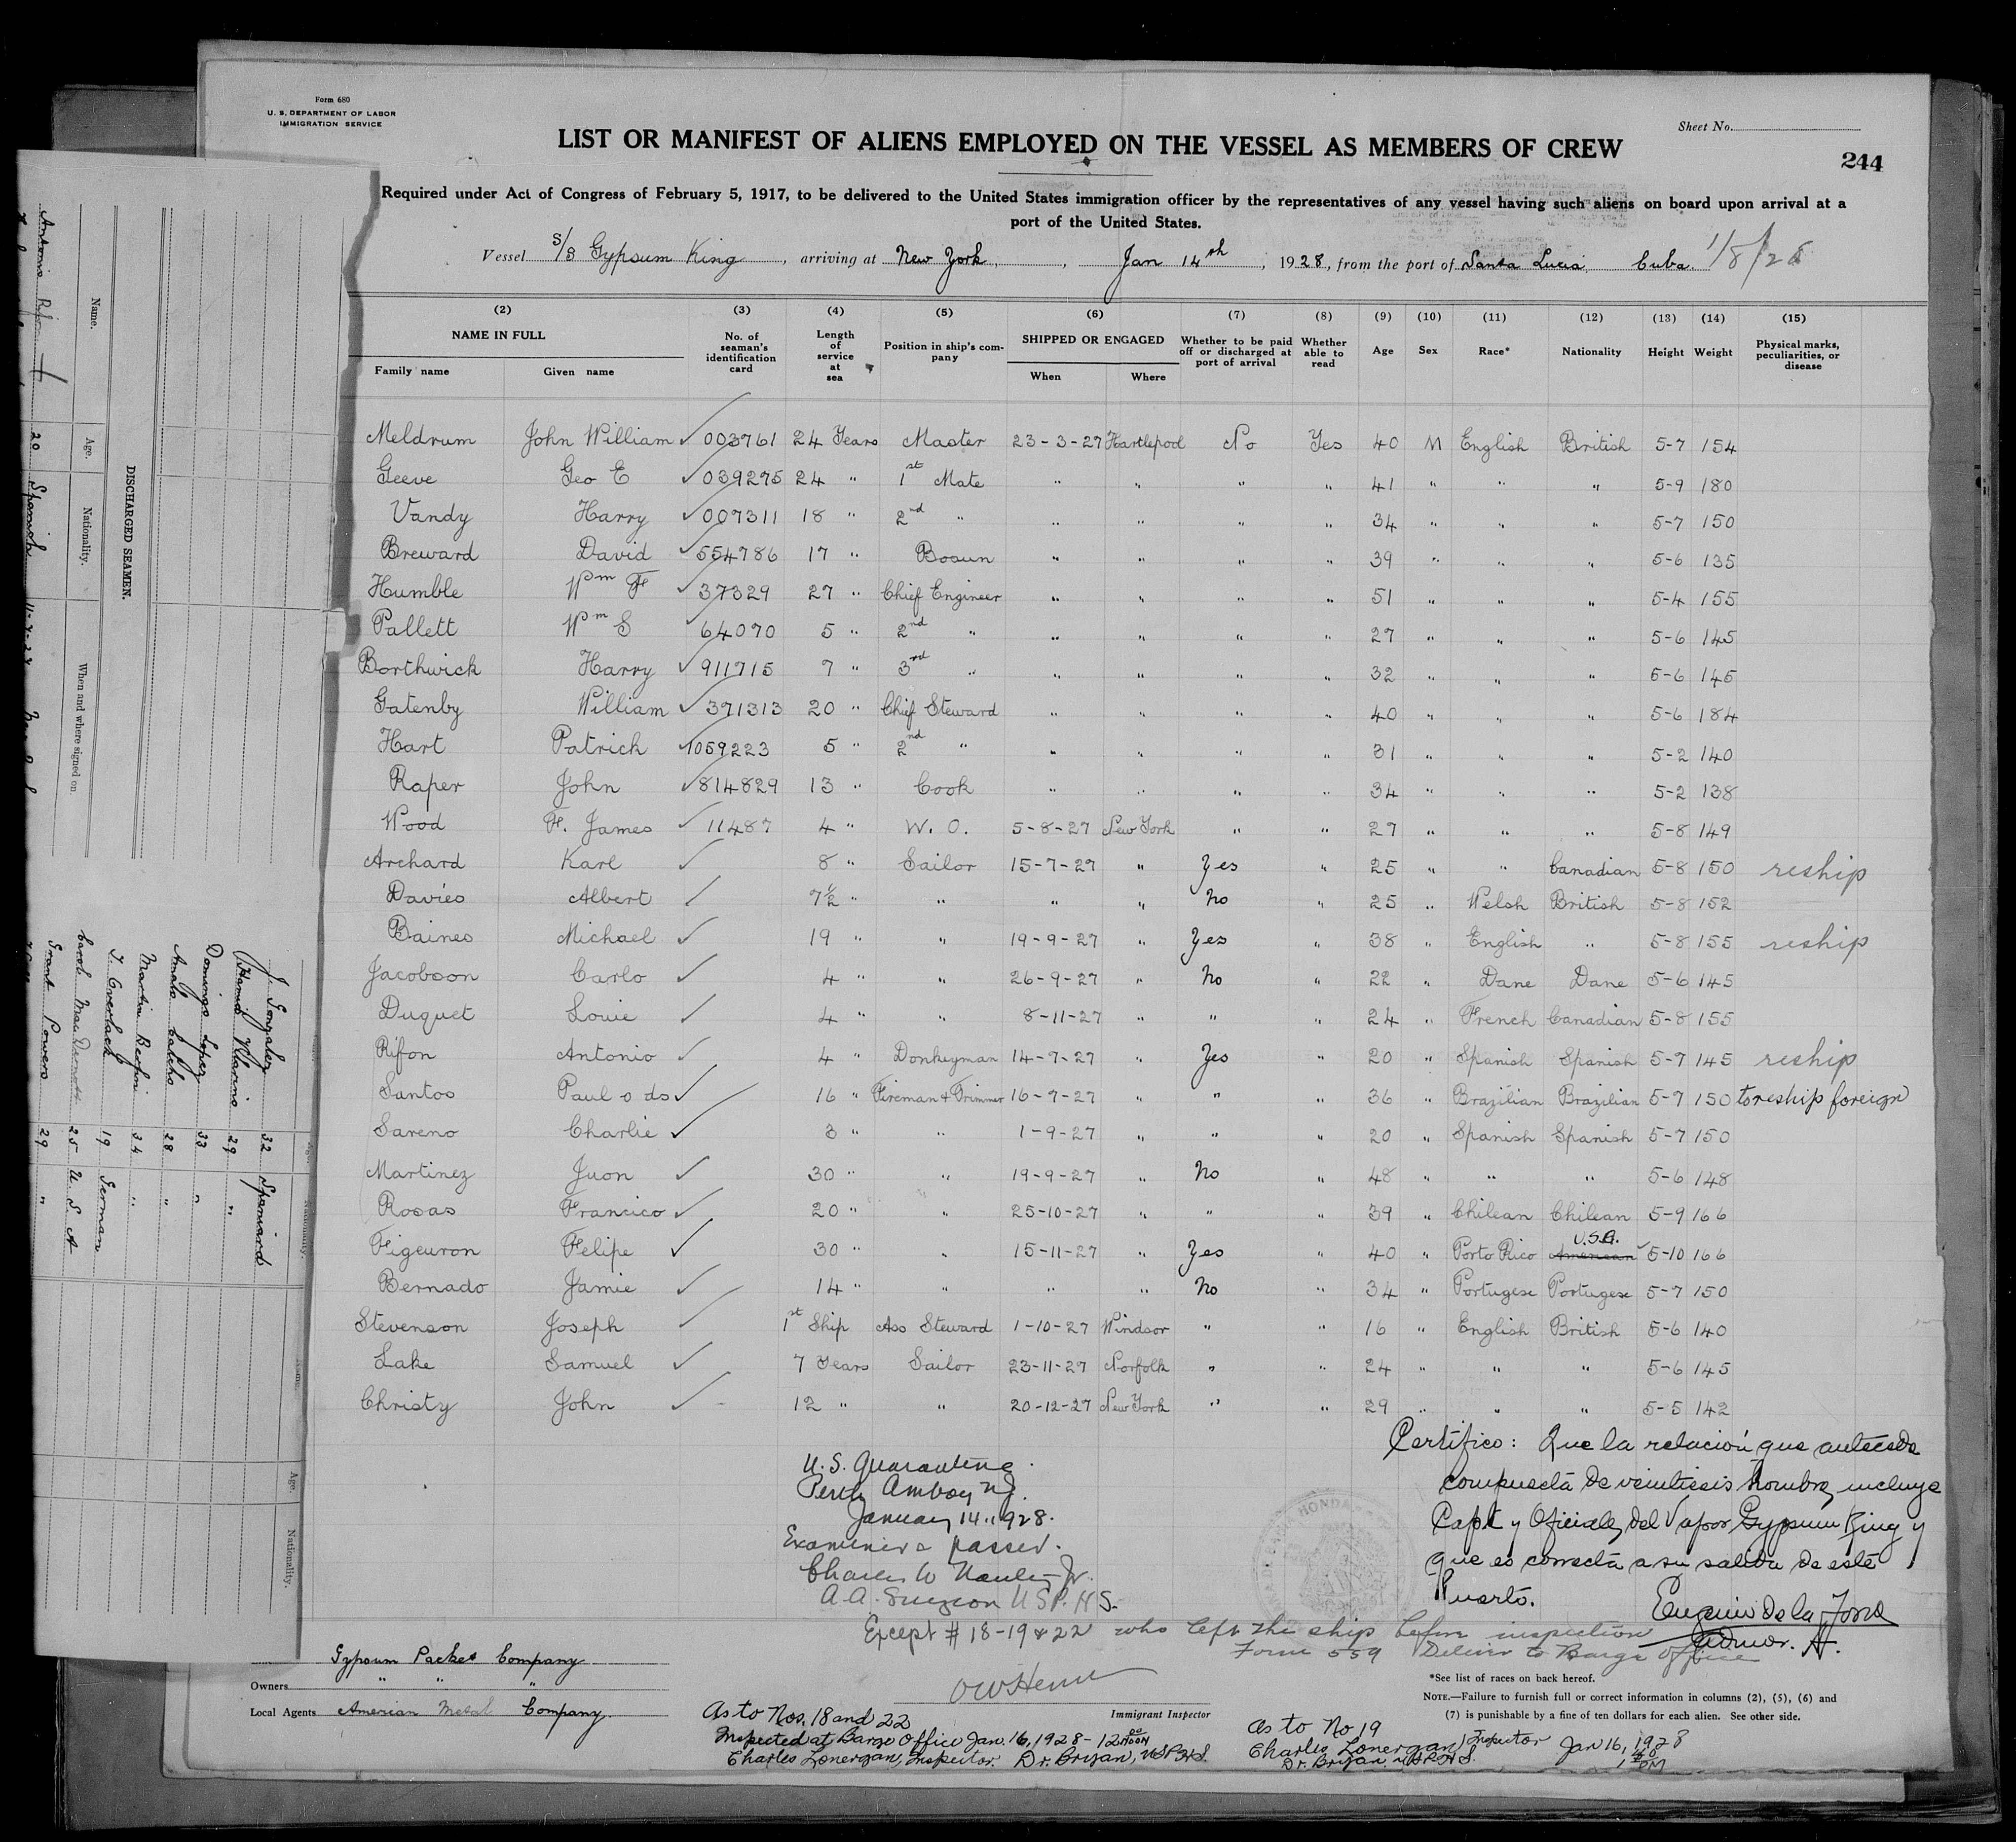 Form 680
U. S. DEPARTMENT OF LABOR
IMMIGRATION SERVICE
Sheet No.
LIST OR MANIFEST OF ALIENS EMPLOYED ON THE VESSEL AS MEMBERS OF CREW
244
Required under Act of Congress of February 5, 1917, to be delivered to the United States immigration officer by the representatives of any vessel having such aliens on board upon arrival at a
port of the United States.
Vessel S/S Gypsum King, arriving at New York, Jan 14th, 1928, from the port of Santa Lucia, Cuba. 1/8/28
(2) (3) (4) (5) (6) (7) (8) (9) (10) (11) (12) (13) (14) (15)
NAME IN FULL No. of seaman's identification card Length of service at sea Position in ship's company SHIPPED OR ENGAGED Whether to be paid off or discharged at port of arrival Whether able to read Age Sex Race* Nationality Height Weight Physical marks, peculiarities, or disease
Family name Given name When Where
Meldrum John William ✓ 003761 24 Years Master 23-3-27 Hartlepool No Yes 40 M English British 5-7 154
Geeve Geo E ✓ 039275 24 " 1st Mate " " " " 41 " " " 5-9 180
Vandy Harry ✓ 007311 18 " 2nd " " " " " 34 " " " 5-7 150
Breward David ✓ 554786 17 " Bosun " " " " 39 " " " 5-6 135
Humble Wm F ✓ 37329 27 " Chief Engineer " " " " 51 " " " 5-4 155
Pallett Wm S ✓ 64070 5 " 2nd " " " " " 27 " " " 5-6 145
Borthwick Harry ✓ 911715 7 " 3rd " " " " " 32 " " " 5-6 145
Gatenby William ✓ 371313 20 " Chief Steward " " " " 40 " " " 5-6 184
Hart Patrick ✓ 1059223 5 " 2nd " " " " " 31 " " " 5-2 140
Raper John ✓ 814829 13 " Cook " " " " 34 " " " 5-2 138
Wood F. James ✓ 11487 4 " W. O. 5-8-27 New York " " 27 " " " 5-8 149
Archard Karl ✓ 8 " Sailor 15-7-27 " Yes " 25 " " Canadian 5-8 150 reship
Davies Albert ✓ 7½ " " " " No " 25 " Welsh British 5-8 152
Baines Michael ✓ 19 " " 19-9-27 " Yes " 38 " English " 5-8 155 reship
Jacobson Carlo ✓ 4 " " 26-9-27 " No " 22 " Dane Dane 5-6 145
Duguet Louie ✓ 4 " " 8-11-27 " " " 24 " French Canadian 5-8 155
Rifon Antonio ✓ 4 " Donkeyman 14-7-27 " Yes " 20 " Spanish Spanish 5-7 145 reship
Santos Paul o ds ✓ 16 " Fireman & Trimmer 16-7-27 " " " 36 " Brazilian Brazilian 5-7 150 to reship foreign
Sareno Charlie ✓ 3 " " 1-9-27 " " " 20 " Spanish Spanish 5-7 150
Martinez Juon ✓ 30 " " 19-9-27 " No " 48 " " " 5-6 148
Rosas Francico ✓ 20 " " 25-10-27 " " " 39 " Chilean Chilean 5-9 166
Figeuron Felipe ✓ 30 " " 15-11-27 " Yes " 40 " Porto Rico American U.S.A. 5-10 166
Bernado Jamie ✓ 14 " " " " No " 34 " Portugese Portugese 5-7 150
Stevenson Joseph ✓ 1st Ship Ass Steward 1-10-27 Windsor " " 16 " English British 5-6 140
Lake Samuel ✓ 7 Years Sailor 23-11-27 Norfolk " " 24 " " " 5-6 145
Christy John ✓ 12 " " 20-12-27 New York " " 29 " " " 5-5 142
U.S. Quarantine
Perth Amboy N.J.
January 14, 1928.
Examined & passed.
Charles W
A.A. Surgeon U.S.P.H.S.
Certifico: Que la relacion que antecede
compuesta de veintiseis hombres, incluye
Capt y Oficiales, del Vapor Gypsum King y
que es correcta a su salida de este
Puerto.
Eugenio de la
Except # 18-19 & 22 who left the ship before inspection
Form 559 Deliver to Barge Office
Gypsum Packet Company
Owners " " "
Local Agents American Metal Company.
Immigrant Inspector
As to Nos. 18 and 22
Inspected at Barge Office Jan. 16, 1928 - 12 00 noon
Charles Lonergan, Inspector. Dr. Bryan, USPHS.
As to No 19
Charles Lonergan, Inspector Jan 16, 1928
Dr. Bryan, USPHS. PM
*See list of races on back hereof.
NOTE.—Failure to furnish full or correct information in columns (2), (5), (6) and
(7) is punishable by a fine of ten dollars for each alien. See other side.
DISCHARGED SEAMEN.
Name. Age. Nationality. When and where signed on.
Antonio Rifon 20 Spanish
J Gonzalez 32 Spaniard
29 "
Domingo Lopez 33 "
28 "
Martin 34 "
T. Overlack 19 German
Carol MacDermott 25 U. S. A
Grant Powers 29 "
Name. Age. Nationality.